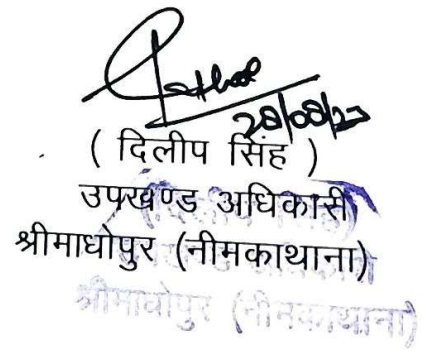 28/08/23
( दिलीप सिंह )
उपखण्ड अधिकारी
श्रीमाधोपुर (नीमकाथाना)
श्रीमाधोपुर (नीमकाथाना)